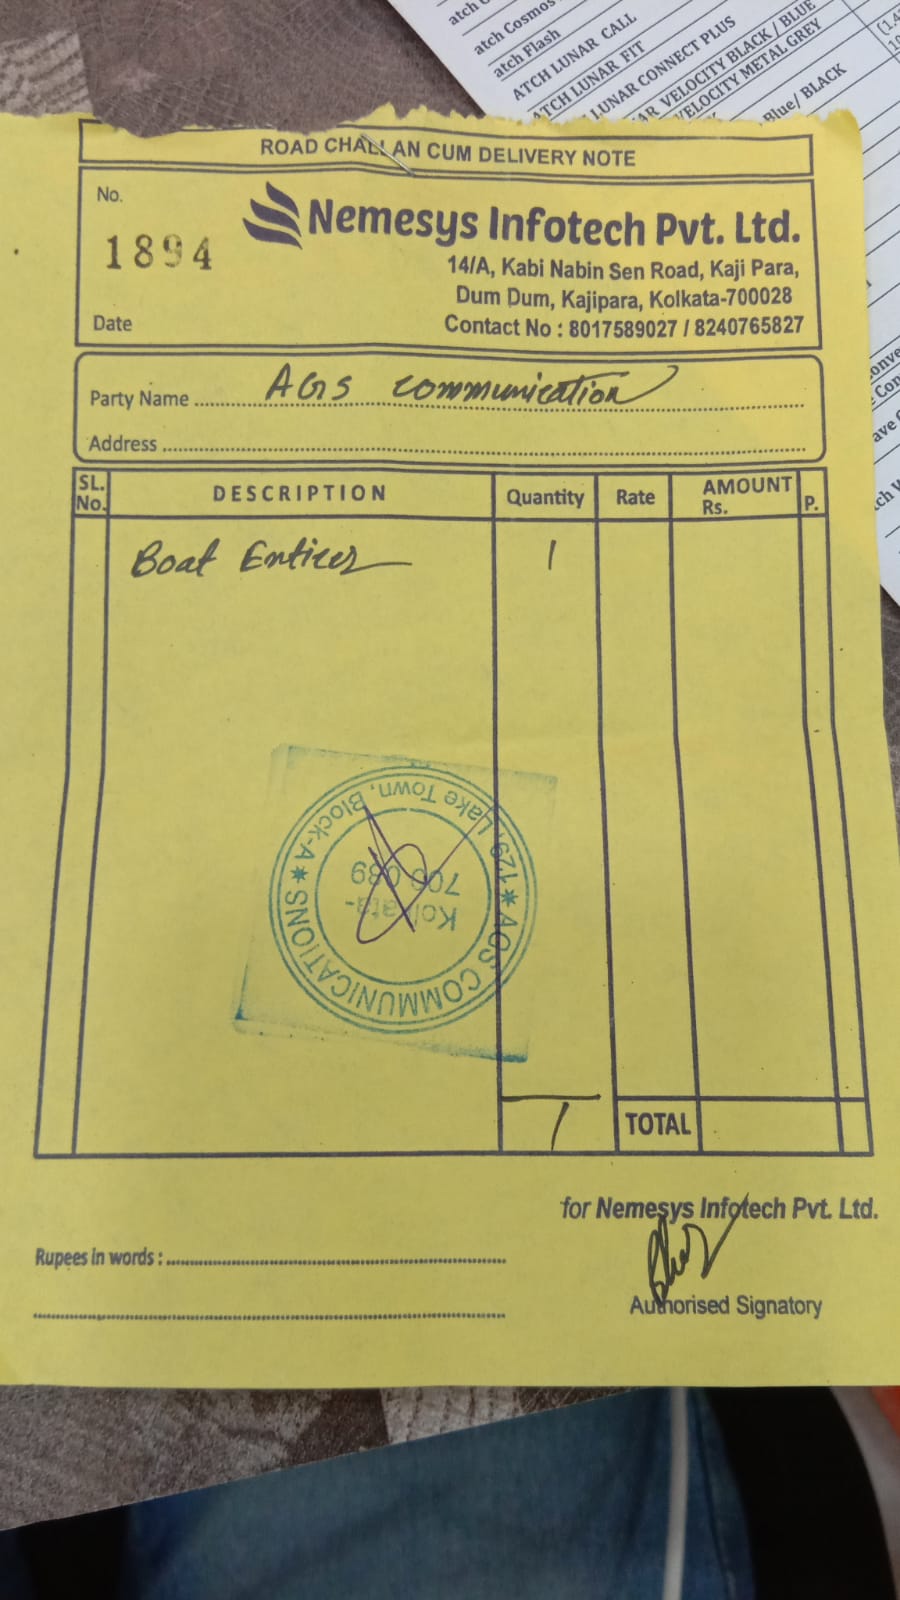 atch Cosmos
atch Flash
ATCH LUNAR CALL
ATCH LUNAR FIT
LUNAR CONNECT PLUS
VELOCITY BLACK / BLUE
VELOCITY METAL GREY
Blue/ BLACK
ROAD CHALLAN CUM DELIVERY NOTE
No.
1894
Nemesys Infotech Pvt. Ltd.
14/A, Kabi Nabin Sen Road, Kaji Para,
Dum Dum, Kajipara, Kolkata-700028
Date
Contact No : 8017589027 / 8240765827
Party Name AGS Communication
Address
SL. No. DESCRIPTION Quantity Rate AMOUNT Rs. P.
Boat Enticer 1
AGS COMMUNICATIONS
129, Lake Town, Block-A
Kolkata-
700 089
1 TOTAL
for Nemesys Infotech Pvt. Ltd.
Rupees in words :
Authorised Signatory